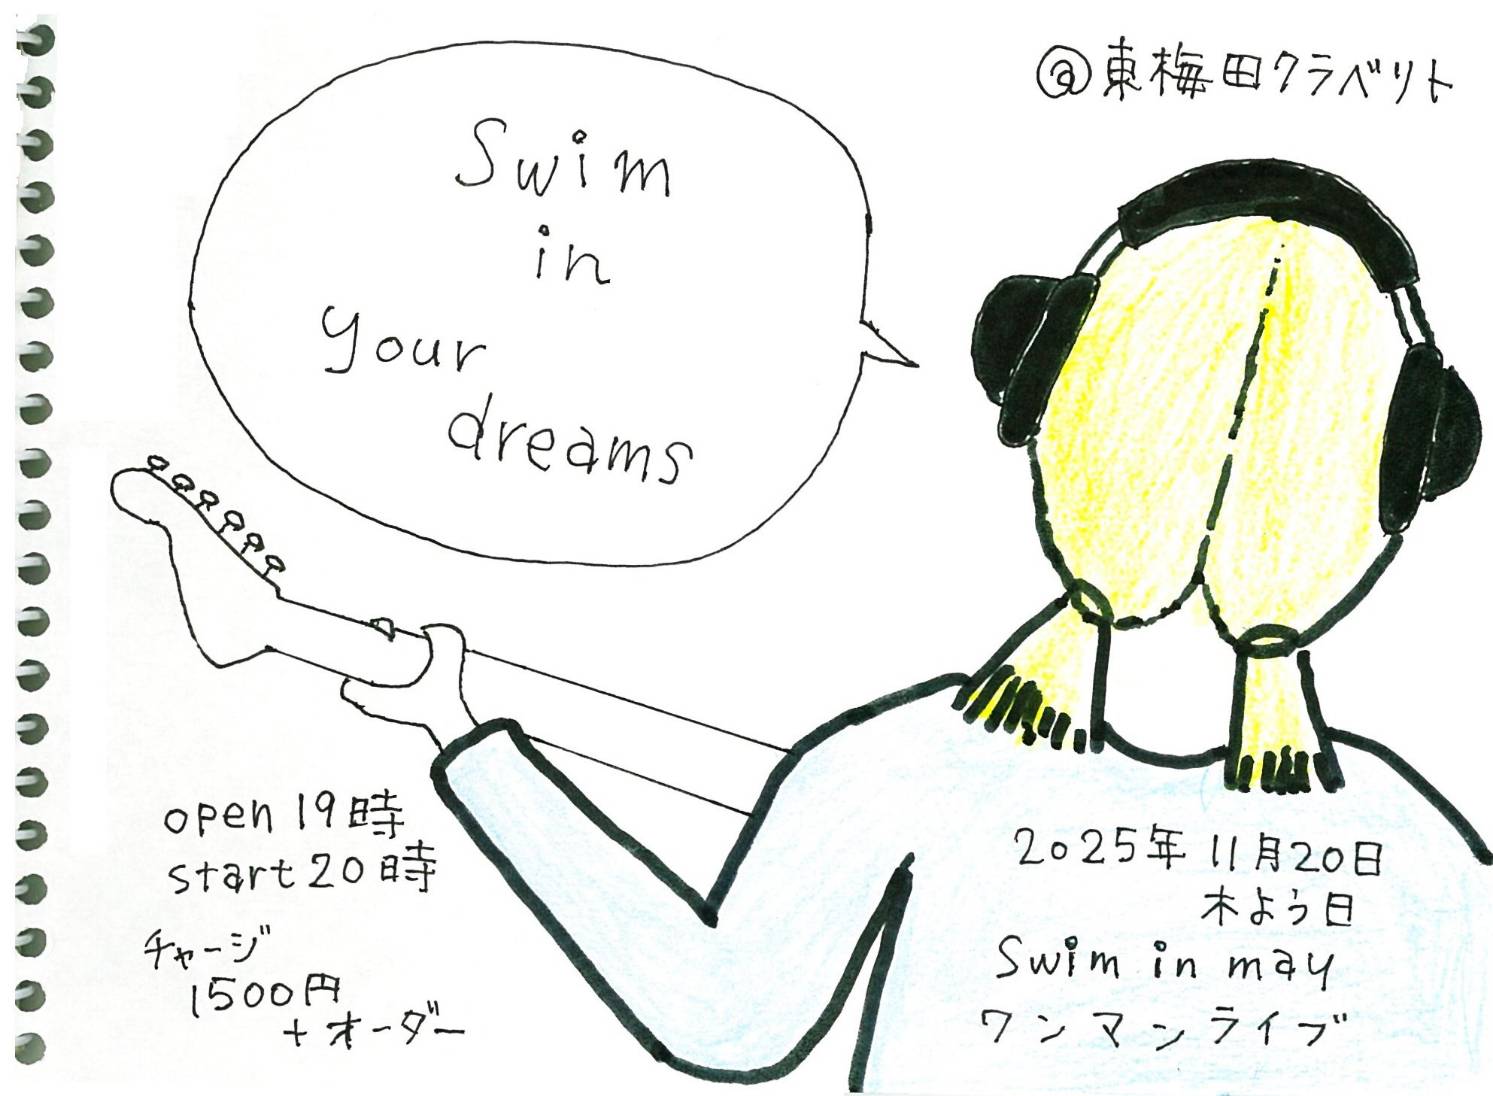 @東梅田クラベリト
Swim
in
your
dreams
open 19時
start 20時
チャージ
1500円
+オーダー
2025年 11月20日
木よう日
Swim in may
ワンマンライブ